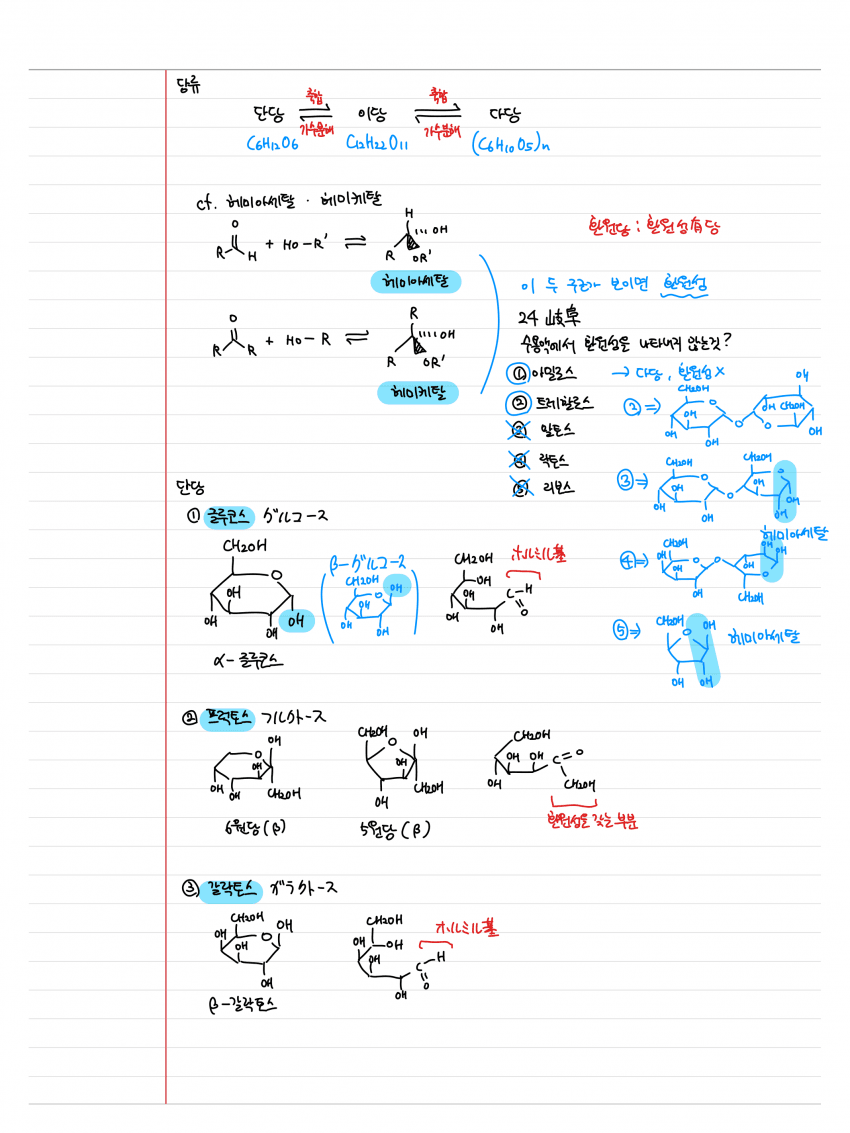 당류
축합 축합
단당 이당 다당
가수분해 가수분해
C6H12O6 C12H22O11 (C6H10O5)n
cf. 헤미아세탈 · 헤미케탈
환원당 : 환원성有당
O
R H + HO-R' ⇌ H OH R OR'
헤미아세탈
이 두 구조가 보이면 환원성
O
R R + HO-R ⇌ R OH R OR'
헤미케탈
24 岐阜
수용액에서 환원성을 나타내지 않는것?
① 아밀로스 → 다당, 환원성 X
② 트레할로스
③ 말토스
④ 락토스
⑤ 리보스
② ⇒ CH2OH O OH OH O OH CH2OH O OH OH
③ ⇒ CH2OH O OH OH O CH2OH O OH OH OH
헤미아세탈
④ ⇒ CH2OH O OH OH OH O OH OH OH O CH2OH
⑤ ⇒ CH2OH O OH OH OH
헤미아세탈
단당
① 글루코스 グルコース
CH2OH O OH OH OH OH
α- 글루코스
β-グルコース
CH2OH O OH OH OH OH
ホルミル基
CH2OH OH OH OH OH C-H O
② 프럭토스 フルクトース
OH O OH OH OH CH2OH
6원당 (β)
CH2OH O OH OH OH CH2OH
5원당 (β)
CH2OH OH OH OH C=O CH2OH
환원성을 갖는 부분
③ 갈락토스 ガラクトース
CH2OH OH O OH OH OH
β-갈락토스
ホルミル基
CH2OH OH OH OH OH C-H O